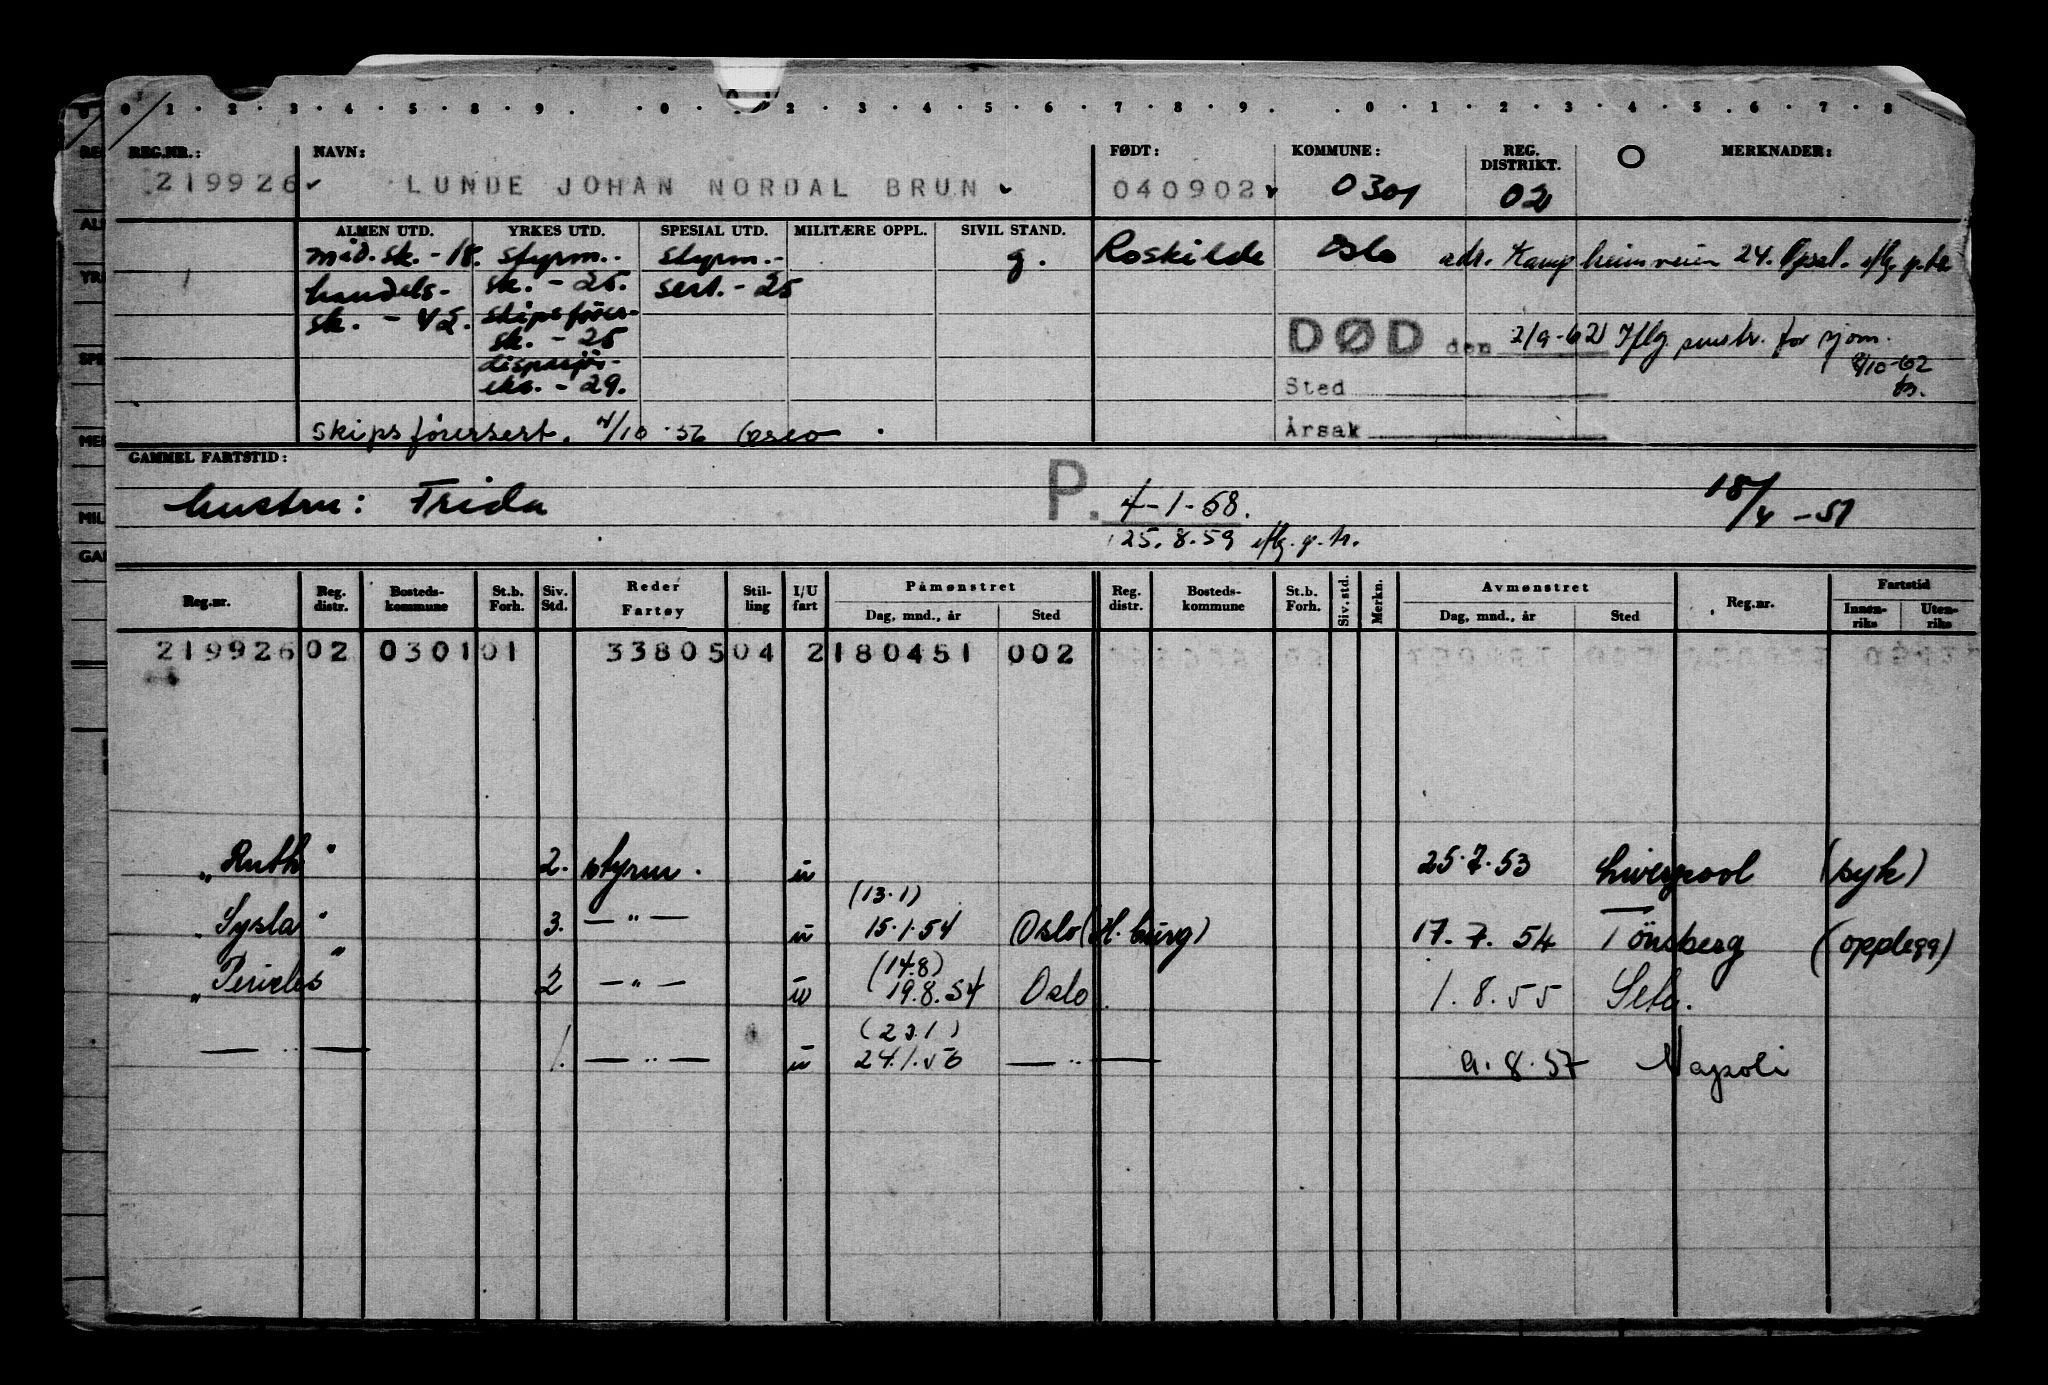 0 · 1 · 2 · 3 · 4 · 5 · 6 · 7 · 8 · 9 . · 0 · 2 · 3 · 4 · 5 · 6 · 7 · 8 · 9 . . 0 · 1 · 2 · 3 · 4 · 5 · 6 · 7 · 8
REG.NR.: NAVN: FØDT: KOMMUNE: REG. DISTRIKT. O MERKNADER:
219926 LUNDE JOHAN NORDAL BRUN 040902 0301 02
ALMEN UTD. YRKES UTD. SPESIAL UTD. MILITÆRE OPPL. SIVIL STAND.
mid.sk. - 18. styrm.- styrm.- g. Roskilde Oslo adr. 24.
handels- sk. - 25. sert. - 25
sk. - 42. skipsfører-
sk. - 25 DØD den 2/9-62 Iflg for sjøm.
8/10-62
eks. - 29. Sted
skipsførersert. 4/10 56 Oslo Årsak
GAMMEL FARTSTID:
hustru: Frida P. 4-1-58. 18/4 - 51
25.8.59 iflg. p.
Reg.nr. Reg. distr. Bosteds- kommune St.b. Forh. Siv. Std. Reder Fartøy Stil- ling I/U fart Påmønstret Dag, mnd., år Sted Reg. distr. Bosteds- kommune St.b. Forh. Siv. std. Merkn. Avmønstret Dag, mnd., år Sted Reg.nr. Fartstid Innen- riks Uten- riks
219926 02 0301 01 33805 04 2 180451 002
„Ruth" 2. styrm. u 25.7.53 Liverpool (syk)
(13.1)
„Sysla" 3. — " — u 15.1.54 Oslo (H.burg) 17.7.54 Tönsberg (opplegg)
(14.8)
„Pericles" 2 — " — u 19.8.54 Oslo 1.8.55
(23.1)
— " — 1. — " — u 24.1.56 — " — 9.8.57 Napoli